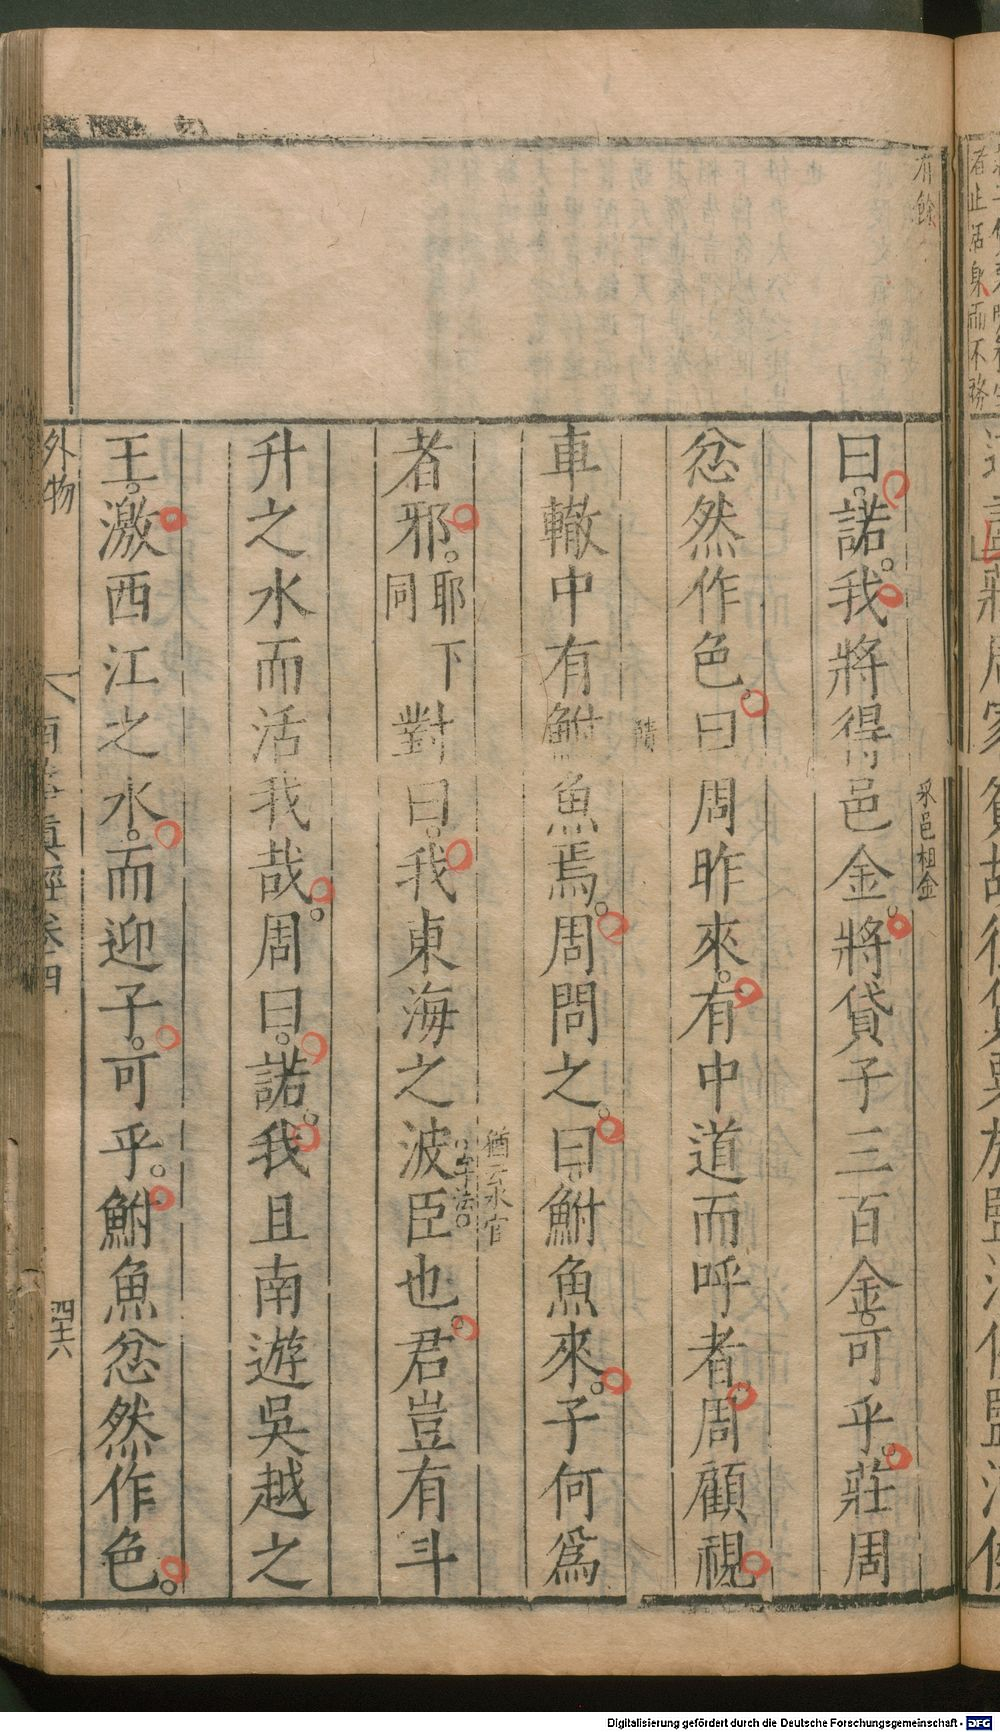 有餘
曰諾。我將得邑金。將貸子三百金。可乎。莊周
采邑租金
忿然作色。曰周昨來。有中道而呼者。周顧視
車轍中有鮒魚焉。周問之。曰。鮒魚來。子何爲
者邪。耶同下對曰。我東海之波臣也。君豈有斗
猶云水官
字法。
升之水而活我哉。周曰。諾。我且南遊吳越之
王。激西江之水。而迎子。可乎。鮒魚忿然作色。
外物
南華真經卷四
四十六
Digitalisierung gefördert durch die Deutsche Forschungsgemeinschaft - DFG